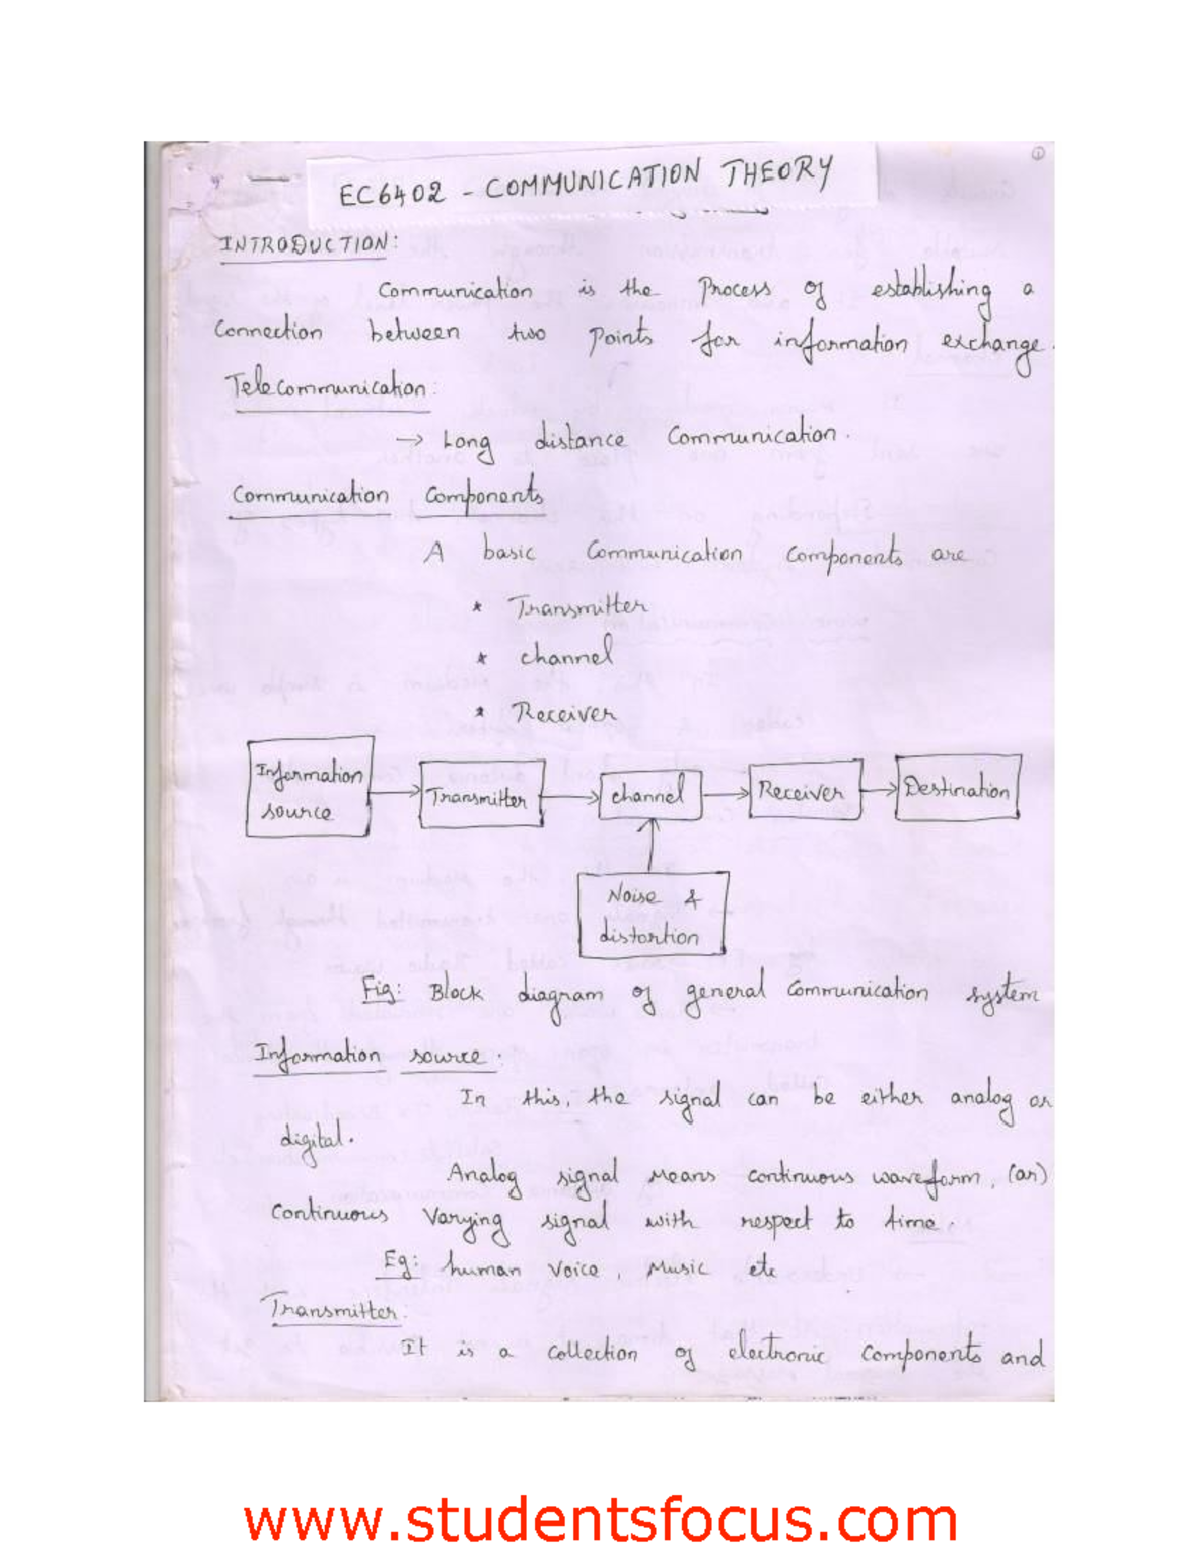 ①
EC6402 - COMMUNICATION THEORY
INTRODUCTION:
Communication is the Process of establishing a
Connection between two Points for information exchange.
Telecommunication:
→ Long distance Communication.
Communication Components
A basic Communication Components are
* Transmitter
* channel
* Receiver
Information source
Transmitter
channel
Receiver
Destination
Noise &
distortion
Fig: Block diagram of general Communication system
Information source:
In this, the signal can be either analog or
digital.
Analog signal means continuous waveform, (or)
Continuous Varying signal with respect to time.
Eg: human Voice, Music etc
Transmitter:
It is a collection of electronic Components and
www.studentsfocus.com